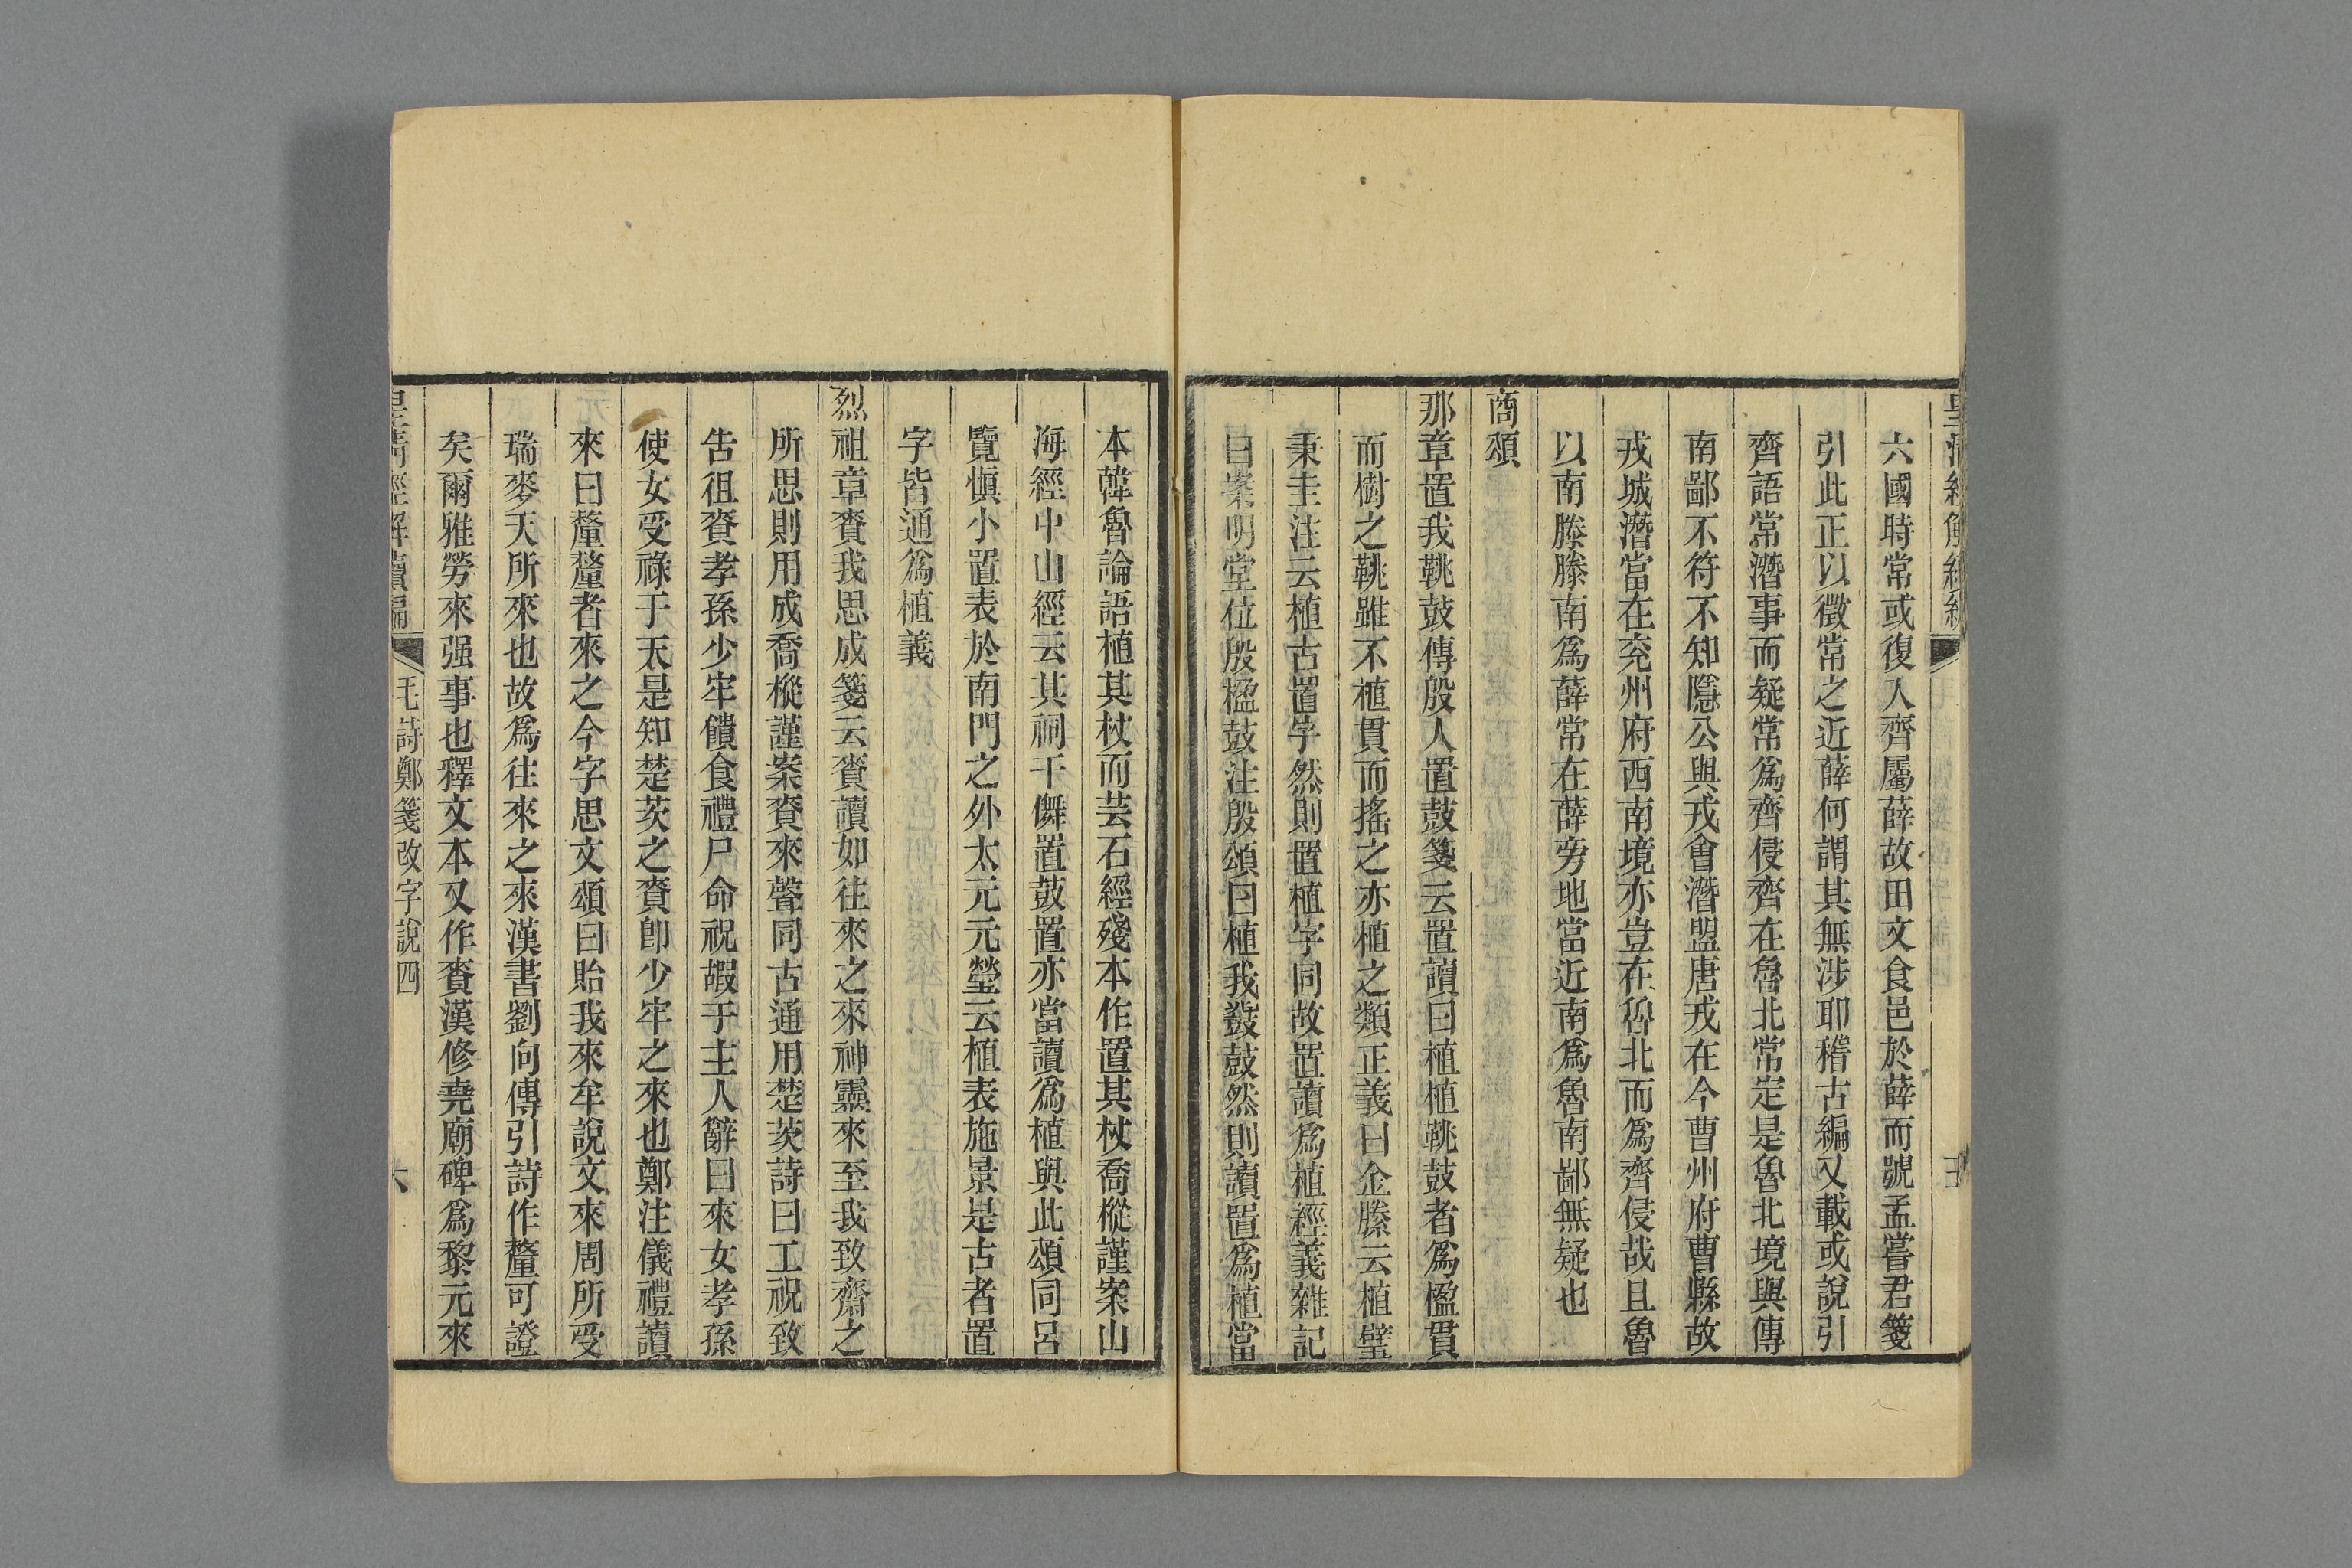 六國時常或復入齊屬薛故田文食邑於薛而號孟嘗君箋
引此正以徵常之近薛何謂其無涉耶稽古編又載或說引
齊語常潛事而疑常爲齊侵齊在魯北常定是魯北境與傳
南鄙不符不知隱公與戎會潛盟唐戎在今曹州府曹縣故
戎城潛當在兖州府西南境亦豈在魯北而爲齊侵哉且魯
以南滕滕南爲薛常在薛旁地當近南爲魯南鄙無疑也
商頌
那章置我鞉鼓傳殷人置鼓箋云置讀曰植植鞉鼓者爲楹貫
而樹之鞉雖不植貫而搖之亦植之類正義曰金縢云植璧
秉圭注云植古置字然則置植字同故置讀爲植經義雜記
曰案明堂位殷楹鼓注殷頌曰植我鼗鼓然則讀置爲植當
本韓魯論語植其杖而芸石經殘本作置其杖喬樅謹案山
海經中山經云其祠干儛置鼓置亦當讀爲植與此頌同呂
覽愼小置表於南門之外太元元瑩云植表施景是古者置
字皆通爲植義
烈祖章賚我思成箋云賚讀如往來之來神靈來至我致齋之
所思則用成喬樅謹案賚來聲同古通用楚茨詩曰工祝致
告徂賚孝孫少牢饋食禮尸命祝嘏于主人辭曰來女孝孫
使女受祿于天是知楚茨之賚卽少牢之來也鄭注儀禮讀
來曰釐釐者來之今字思文頌曰貽我來牟說文來周所受
瑞麥天所來也故爲往來之來漢書劉向傳引詩作釐可證
矣爾雅勞來强事也釋文本又作賚漢修堯廟碑爲黎元來
皇清經解續編 毛詩鄭箋改字說四 六